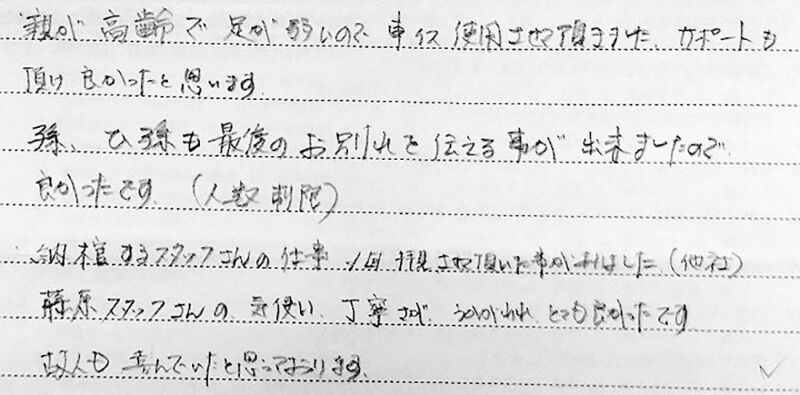 親が高齢で足が弱いので車イス使用させて頂きました、サポートも
頂け良かったと思います。
孫、ひ孫も最度のお別れを伝える事が出来ましたので、
良かったです。(人数制限)
納棺するスタッフさんの仕事、1回拝見させて頂いた事がありました(他社)
藤原スタッフさんの気使い、丁寧さが、うかがわれとても良かったです
故人も喜んでいたと思っております。